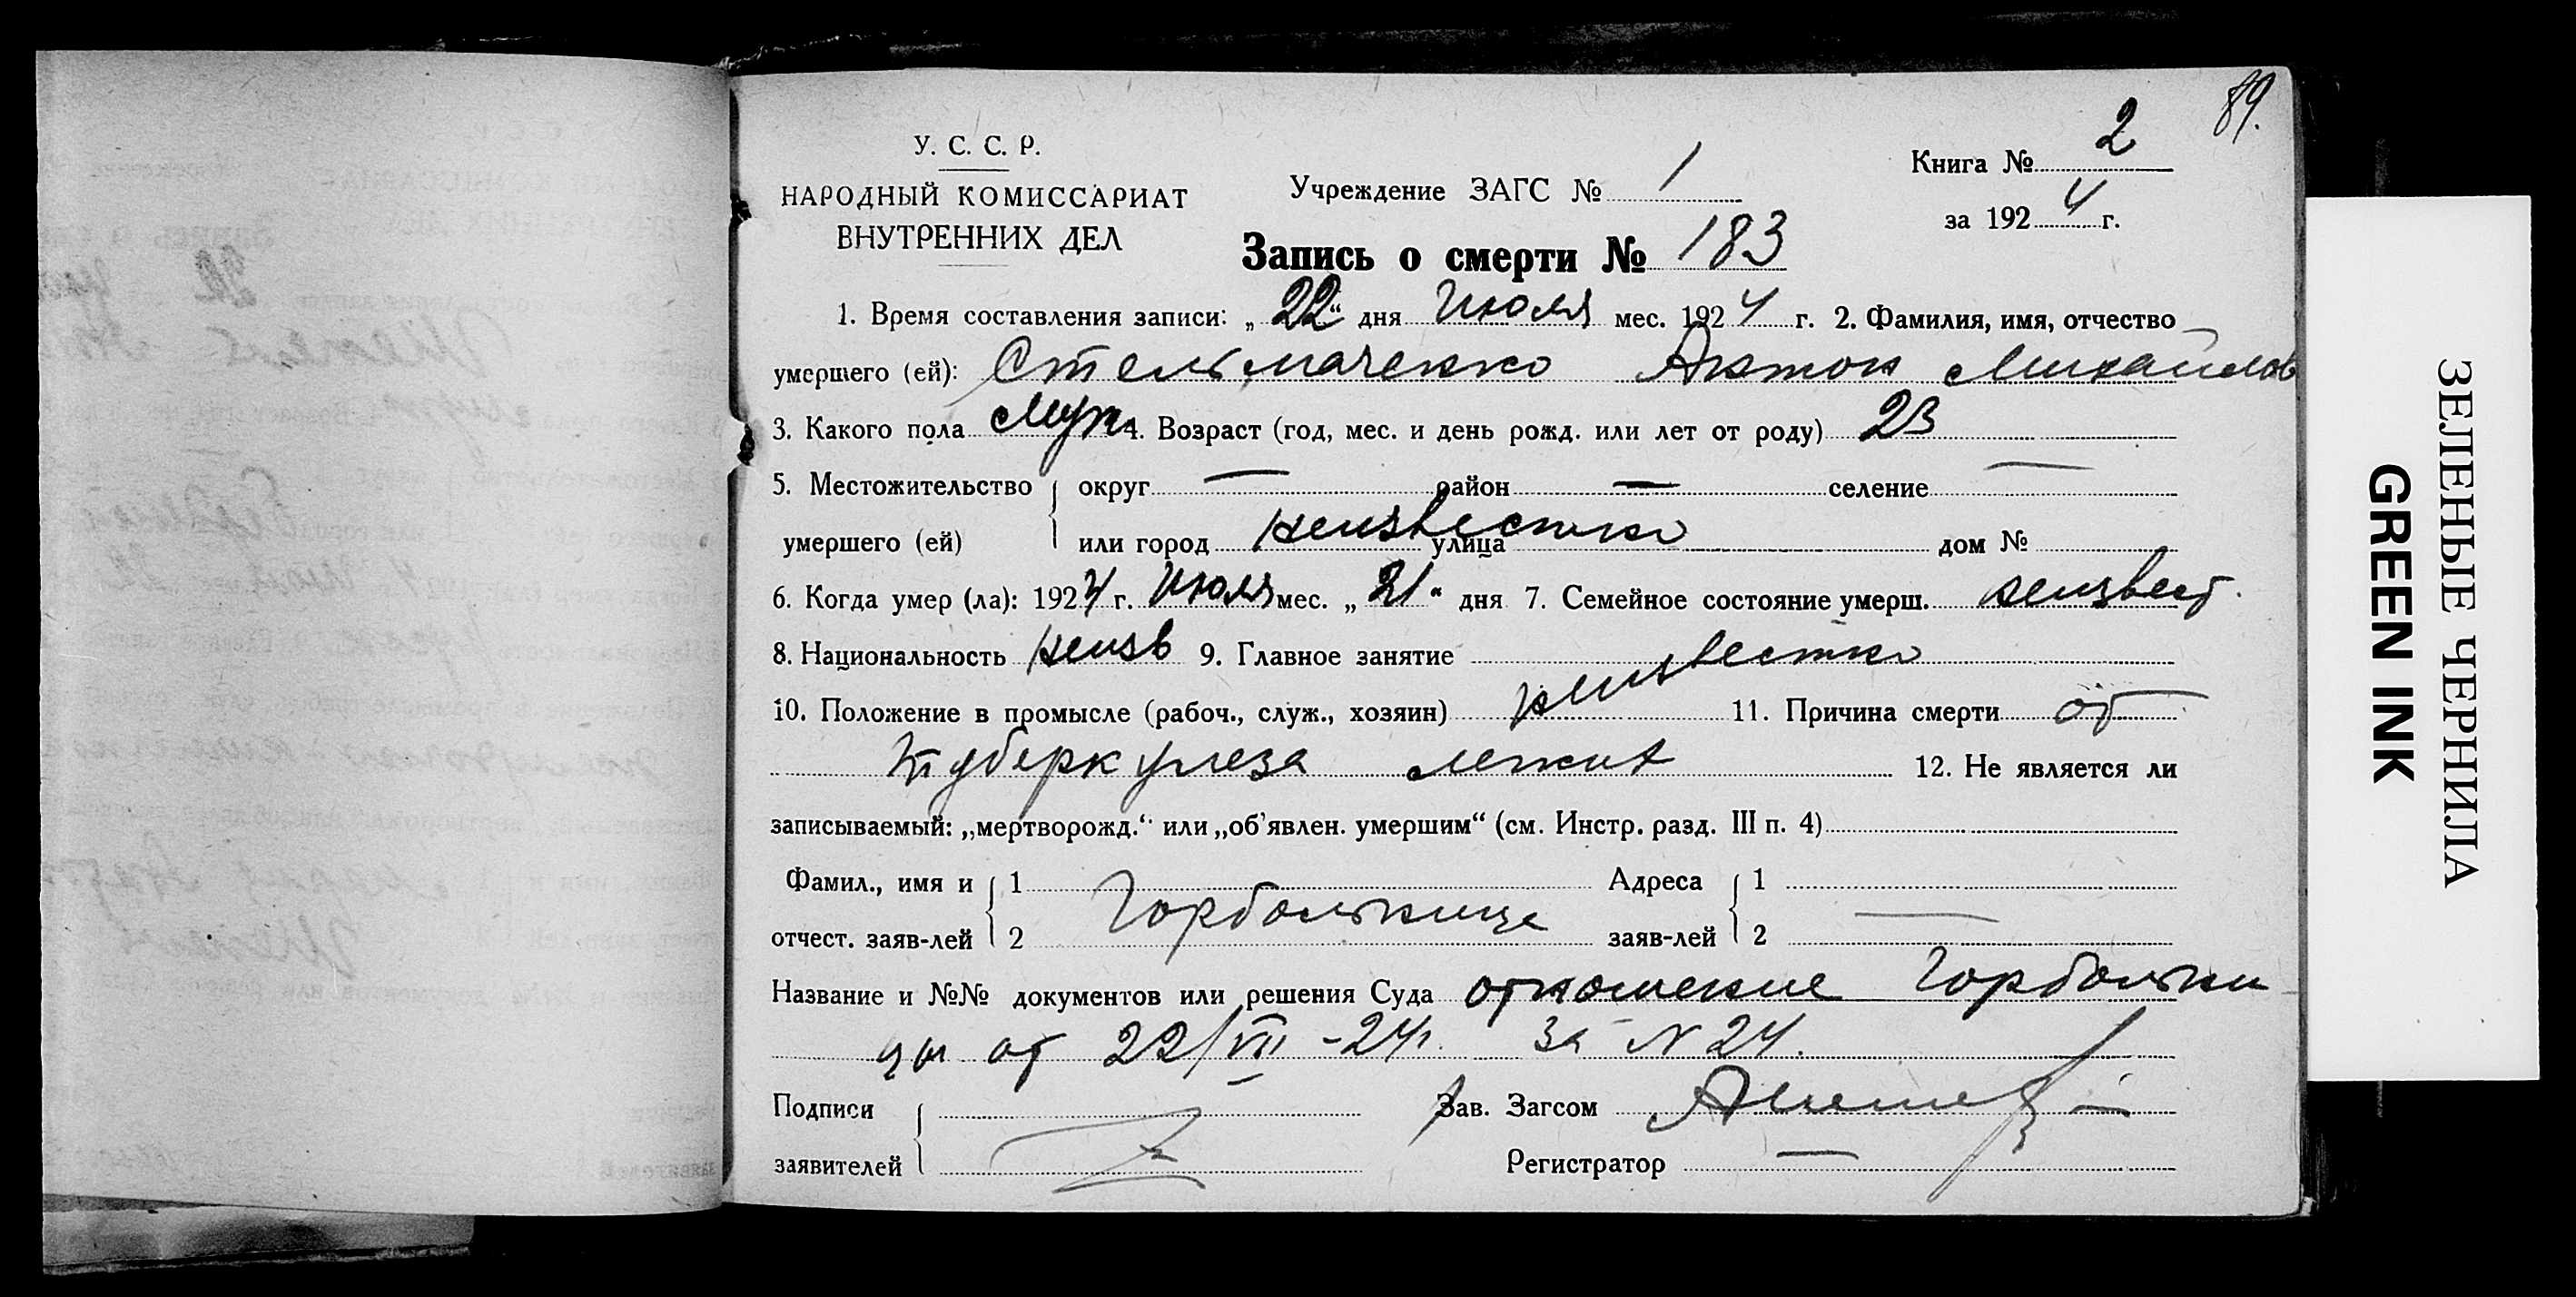 89.
У. С. С. Р.
НАРОДНЫЙ КОМИССАРИАТ
ВНУТРЕННИХ ДЕЛ
Учреждение ЗАГС № 1
Книга № 2
за 1924 г.
Запись о смерти № 183
1. Время составления записи: „22“ дня Июля мес. 1924 г. 2. Фамилия, имя, отчество
умершего (ей): Стельмаченко Антон Михайлов
3. Какого пола муж 4. Возраст (год, мес. и день рожд. или лет от роду) 23
5. Местожительство округ — район — селение —
умершего (ей) или город неизвестно улица дом №
6. Когда умер (ла): 1924 г. Июля мес. „21“ дня 7. Семейное состояние умерш. неизвест.
8. Национальность неизв 9. Главное занятие
10. Положение в промысле (рабоч., служ., хозяин) неизвестно 11. Причина смерти от
туберкулеза легких 12. Не является ли
записываемый: „мертворожд.“ или „об’явлен. умершим“ (см. Инстр. разд. III п. 4)
Фамил., имя и 1 Адреса 1
отчест. заяв-лей 2 Горбольница заяв-лей 2 —
Название и №№ документов или решения Суда отношение Горбольни
цы от 22/VII -24г. за N 24.
Подписи Зав. Загсом
заявителей Регистратор —
ЗЕЛЕНЫЕ ЧЕРНИЛА
GREEN INK